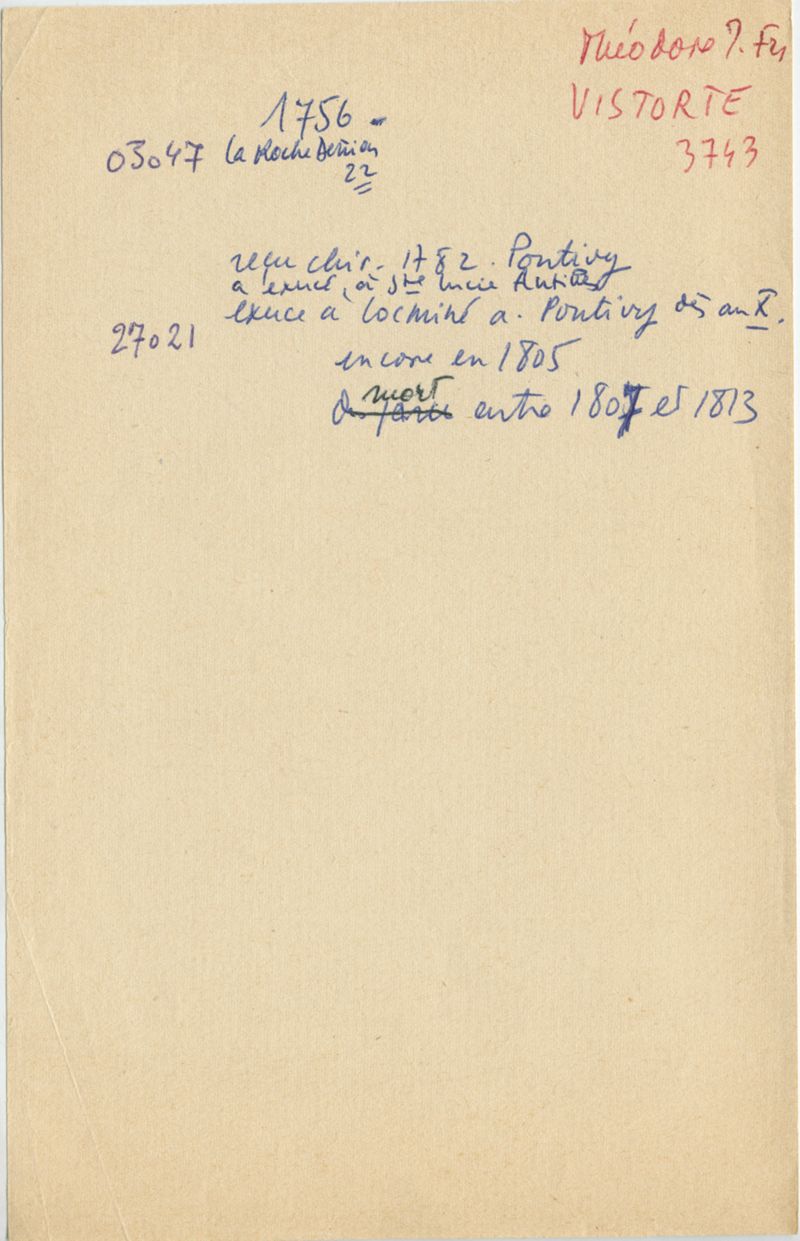 Théodore J. Fr
VISTORTE
3743
1756 -
03047 la Roche Derrien
22
reçu chir. 1782. Pontivy
a exercé à Ste Lucie Antilles
exerce à Locminé a. Pontivy dès an X.
27021
encore en 1805
mort
entre 1807 et 1813